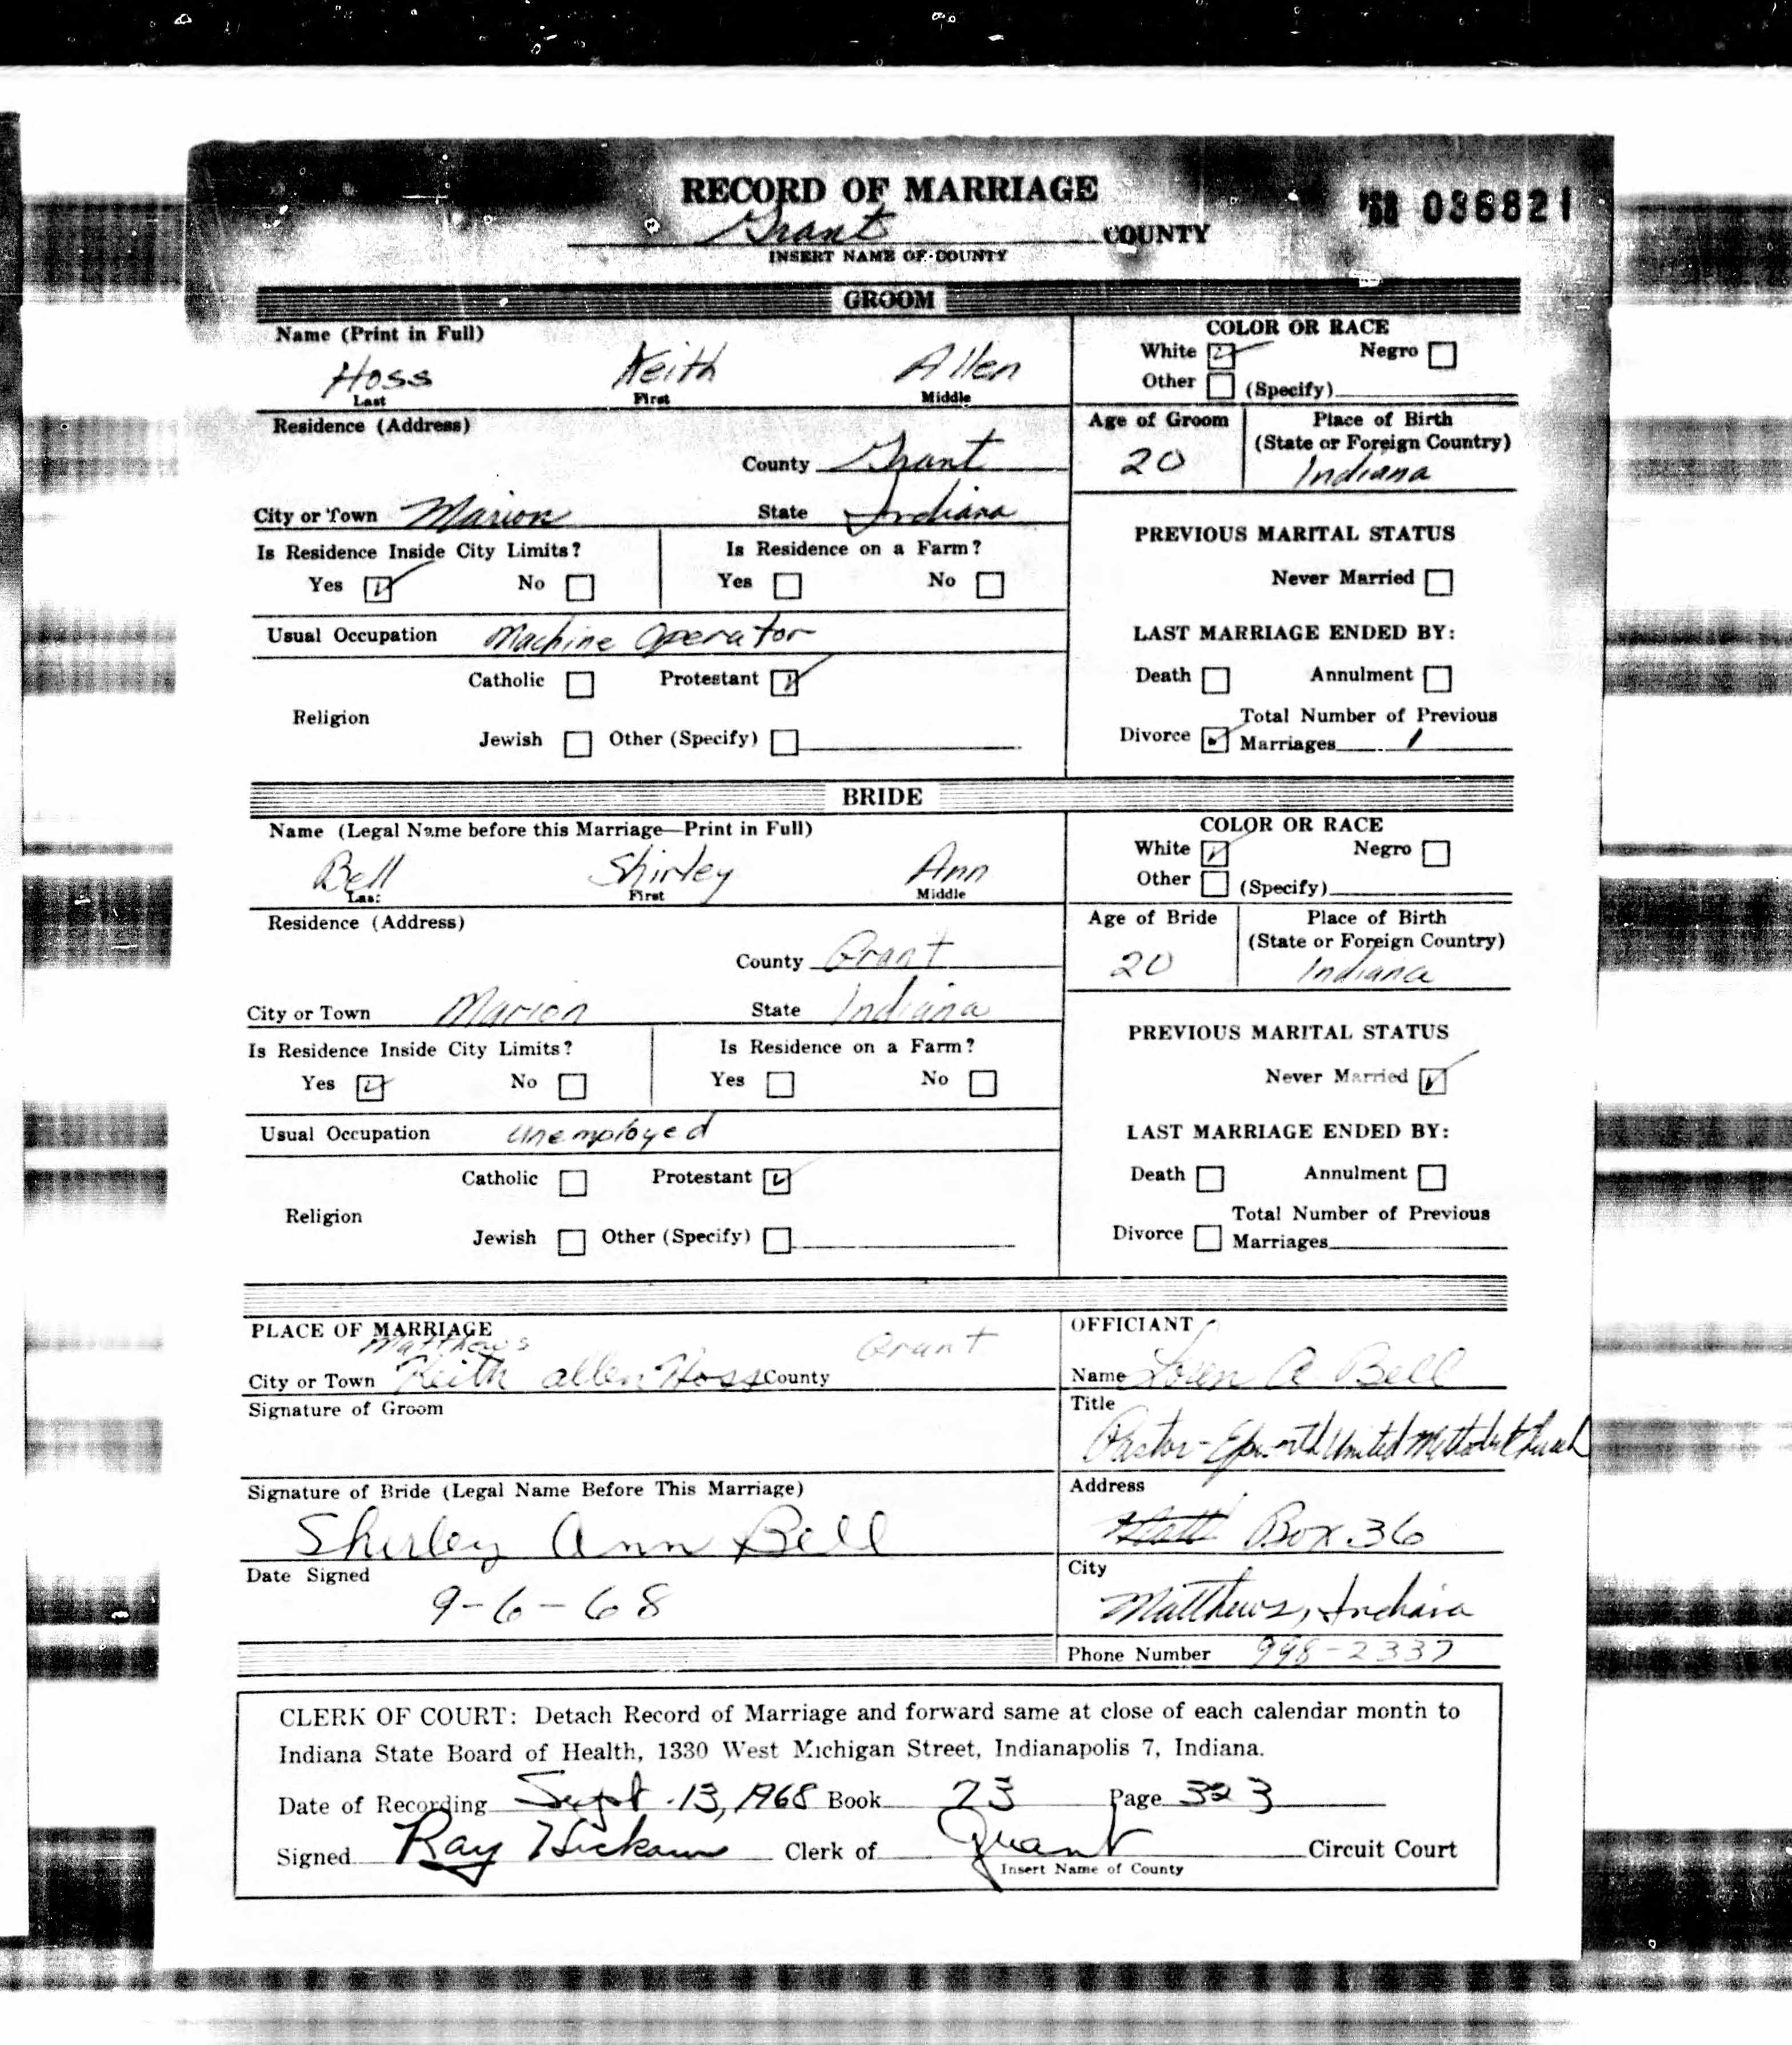 RECORD OF MARRIAGE
'68 036821
Grant COUNTY
INSERT NAME OF COUNTY
GROOM
Name (Print in Full)
Hoss Keith Allen
Last First Middle
COLOR OR RACE
White ☑ Negro ☐
Other ☐ (Specify)
Residence (Address)
County Grant
City or Town Marion State Indiana
Age of Groom
20
Place of Birth
(State or Foreign Country)
Indiana
Is Residence Inside City Limits?
Yes ☑ No ☐
Is Residence on a Farm?
Yes ☐ No ☐
Usual Occupation Machine Operator
Catholic ☐ Protestant ☑
Religion
Jewish ☐ Other (Specify) ☐
PREVIOUS MARITAL STATUS
Never Married ☐
LAST MARRIAGE ENDED BY:
Death ☐ Annulment ☐
Total Number of Previous
Divorce ☑ Marriages 1
BRIDE
Name (Legal Name before this Marriage—Print in Full)
Bell Shirley Ann
Last First Middle
COLOR OR RACE
White ☑ Negro ☐
Other ☐ (Specify)
Residence (Address)
County Grant
City or Town Marion State Indiana
Age of Bride
20
Place of Birth
(State or Foreign Country)
Indiana
Is Residence Inside City Limits?
Yes ☑ No ☐
Is Residence on a Farm?
Yes ☐ No ☐
Usual Occupation unemployed
Catholic ☐ Protestant ☑
Religion
Jewish ☐ Other (Specify) ☐
PREVIOUS MARITAL STATUS
Never Married ☑
LAST MARRIAGE ENDED BY:
Death ☐ Annulment ☐
Total Number of Previous
Divorce ☐ Marriages
PLACE OF MARRIAGE
Matthews Grant
City or Town Keith allen Hoss County
Signature of Groom
Signature of Bride (Legal Name Before This Marriage)
Shirley Ann Bell
Date Signed
9-6-68
OFFICIANT
Name Loren A. Bell
Title
Pastor-Epworth United Methodist Church
Address
Matt Box 36
City
Matthews, Indiana
Phone Number 998-2337
CLERK OF COURT: Detach Record of Marriage and forward same at close of each calendar month to
Indiana State Board of Health, 1330 West Michigan Street, Indianapolis 7, Indiana.
Date of Recording Sept. 13, 1968 Book 73 Page 323
Signed Ray Hickam Clerk of Grant Circuit Court
Insert Name of County